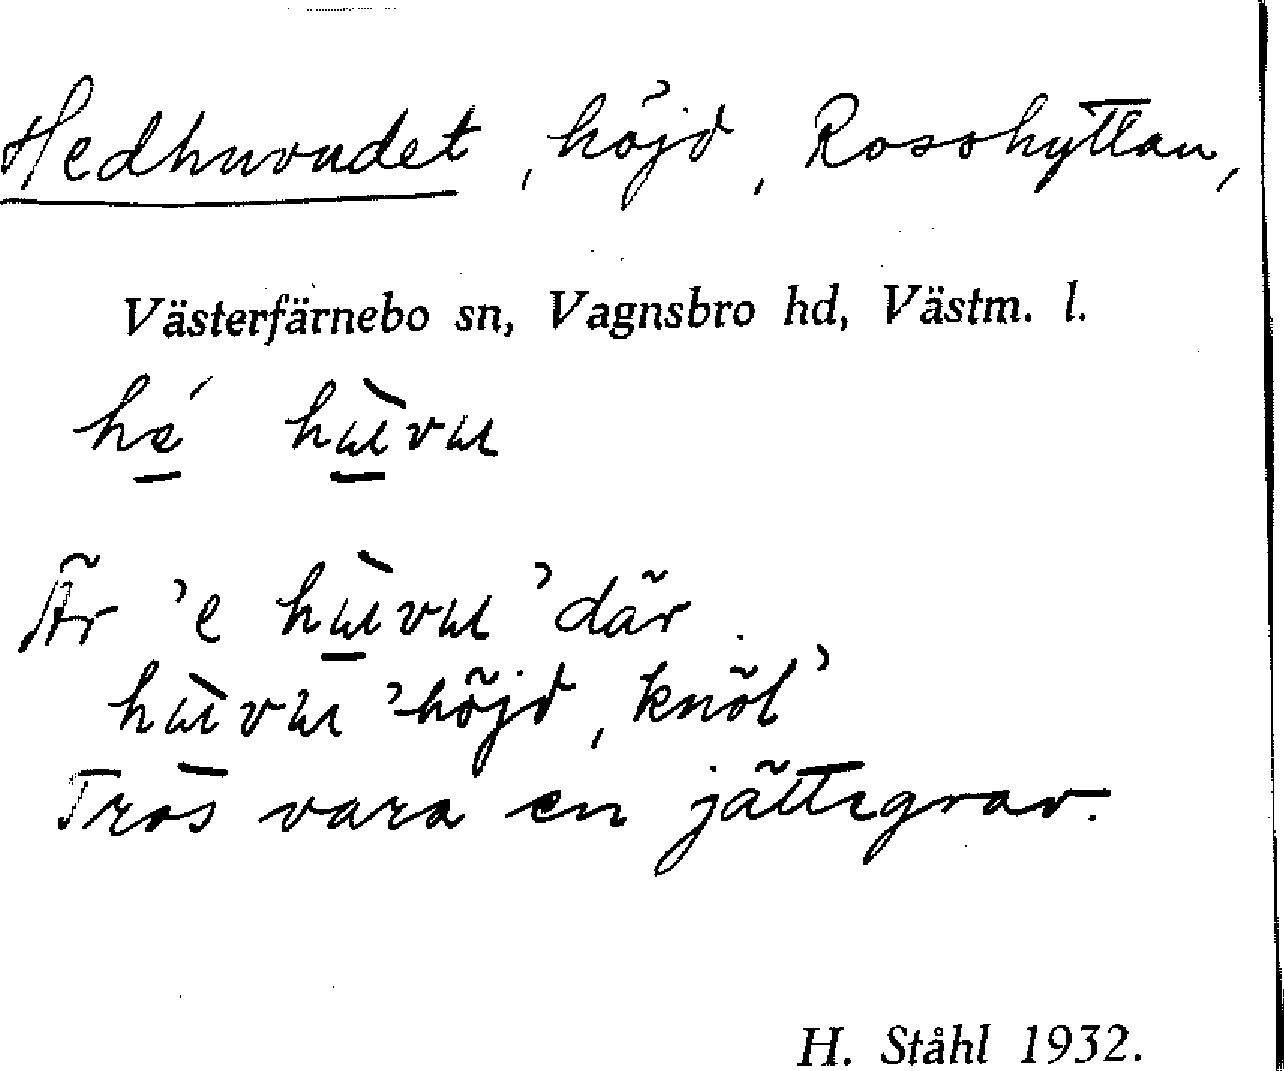 Hedhuvudet, höjd, Rosshyttan,
Västerfärnebo sn, Vagnsbro hd, Västm. l.
hé hùvu
Är 'e hùvu' där.
hùvu 'höjd, knöl'
Tros vara en jättegrav.
H. Ståhl 1932.